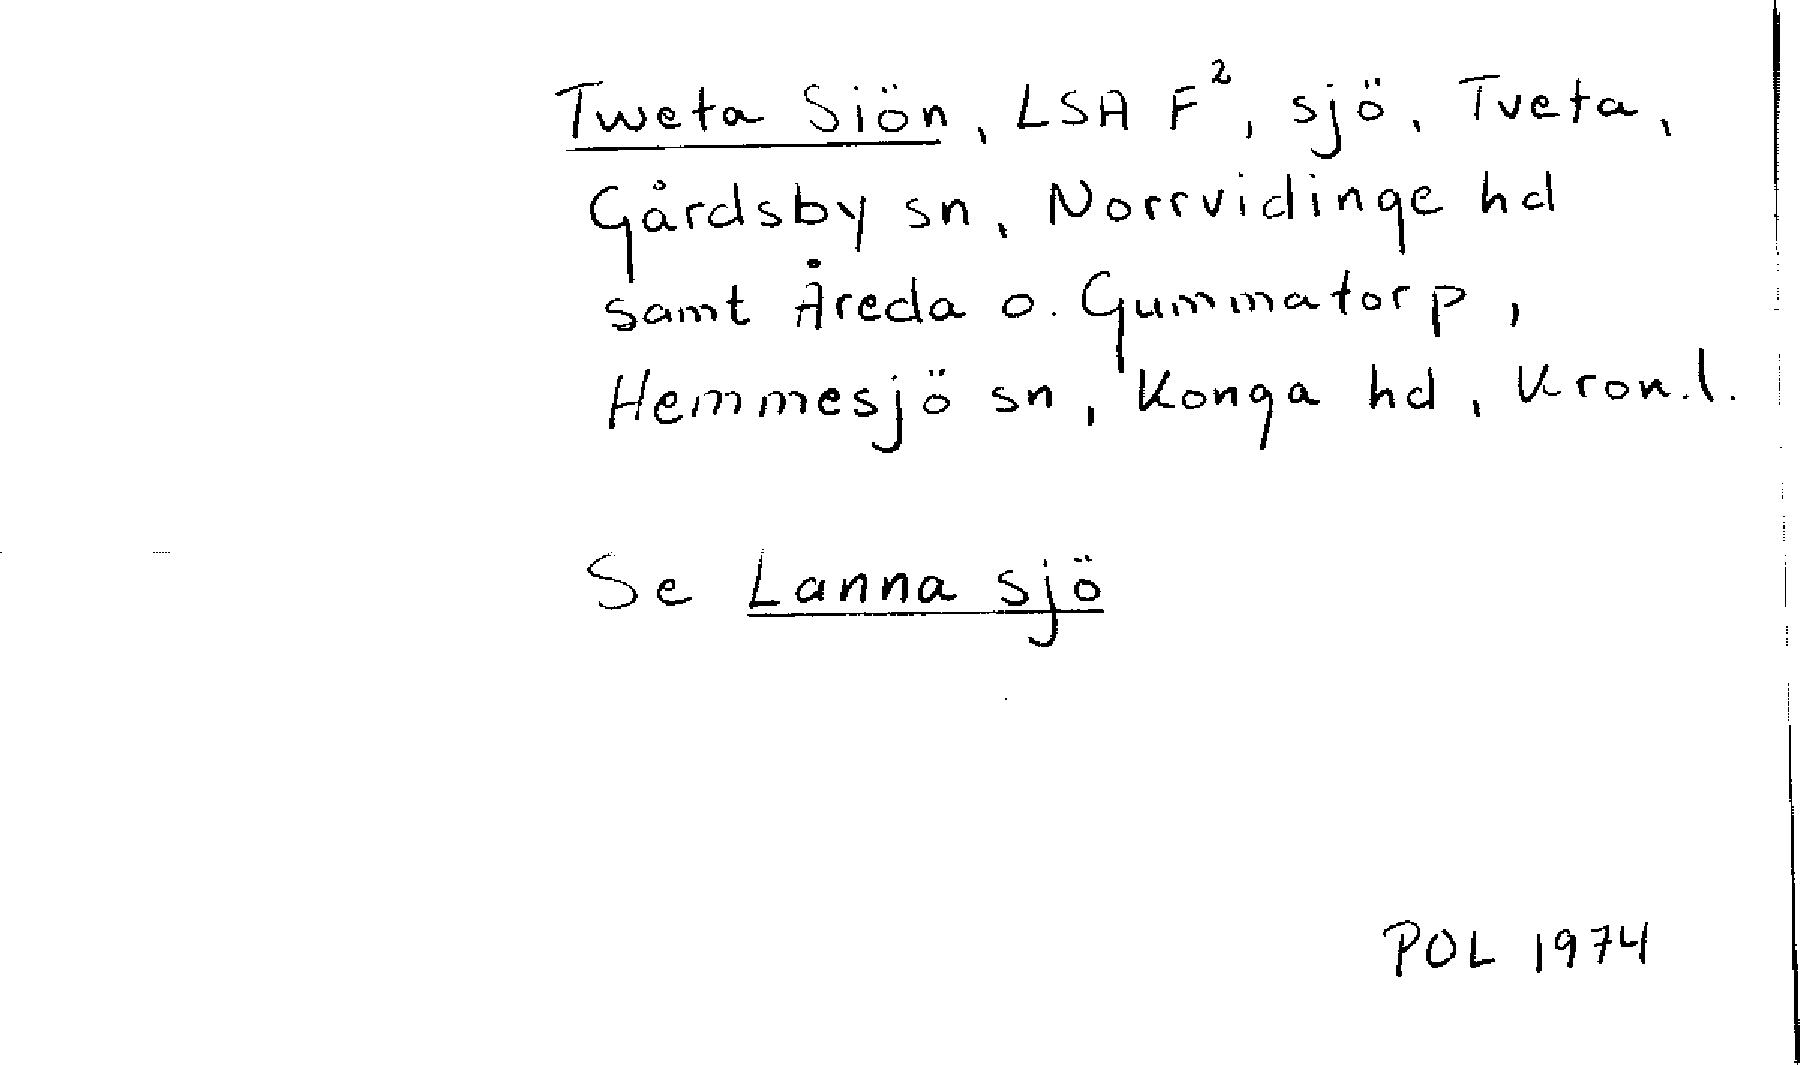 Tweta Siön, LSA F², sjö, Tveta,
Gårdsby sn, Norrvidinge hd
samt Åreda o. Gummatorp,
Hemmesjö sn, Konga hd, Kron.l.
Se Lanna sjö
POL 1974